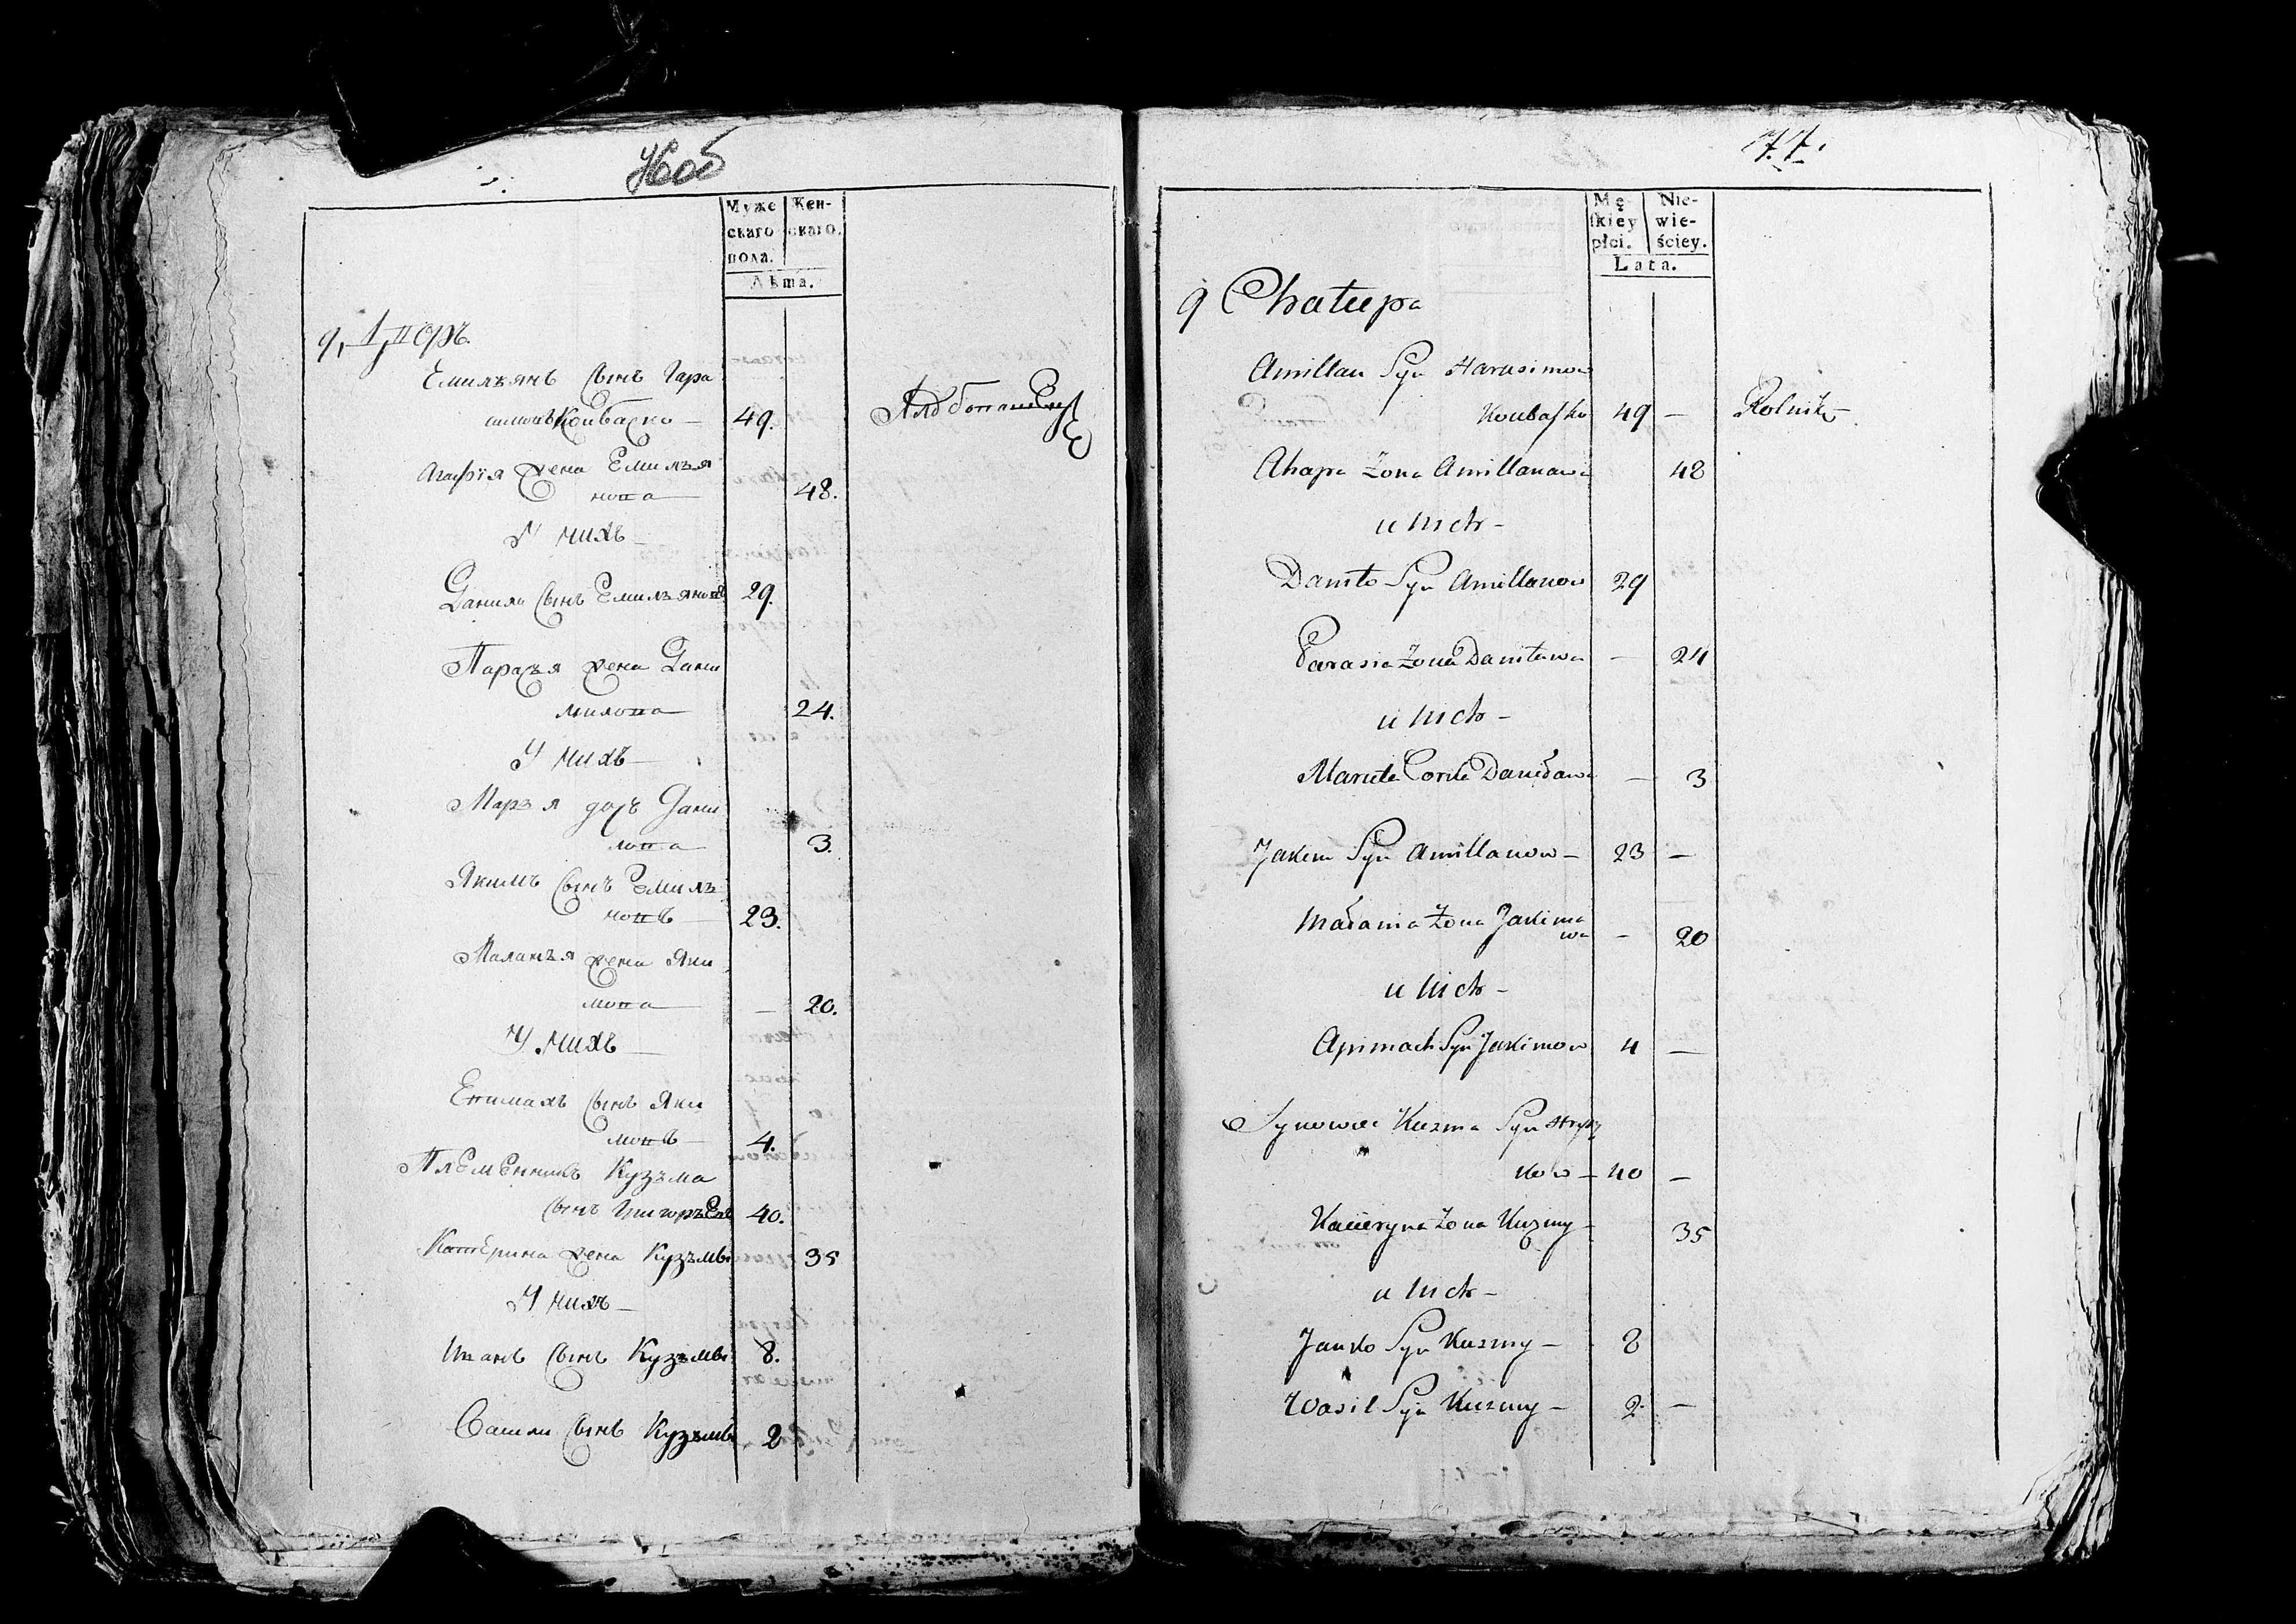 76об
Муже
скаго
пола.
Жен-
скаго.
Лѣта.
9, Дворъ.
Емильянъ Сынъ Гара
симовъ Коибаско — 49.
Агафія жена Емилья
нова — 48.
У нихъ —
Данило Сынъ Емильяновъ 29.
Парасья жена Дани
илова — 24.
У нихъ —
Марья дочь Дани
лова — 3.
Якимъ Сынъ Емилья
новъ — 23.
Маланья жена Яки
мова — 20.
У нихъ —
Епимахъ Сынъ Яки
мовъ — 4.
Племенникъ Кузьма
Сынъ Григорьевъ 40.
Катерина жена Кузьмы 35
У нихъ —
Иванъ Сынъ Кузьмы 8.
Васили Сынъ Кузьмы 2
77.
Mę-
skiey
płci.
Nie-
wie-
ściey.
Lata.
9 Chałupa
Amillan Syn Harasimow
Koubasko 49 — Rolnik
Ahapa Żona Amillanawa 48
u nich —
Daniło Syn Amillanow 29
Parasia Żona Daniławа — 24
u nich —
Maruta Corka Daniława — 3
Jakim Syn Amillanow — 23 —
Małania Żona Jakima
wa — 20
u nich —
Apimach Syn Jakimow 4 —
Synowiec Kuzma Syn Hryho
row — 40 —
Kacieryna Żona Kuzmy — 35
u nich —
Janko Syn Kuzmy — 8
Wasil Syn Kuzmy — 2 —